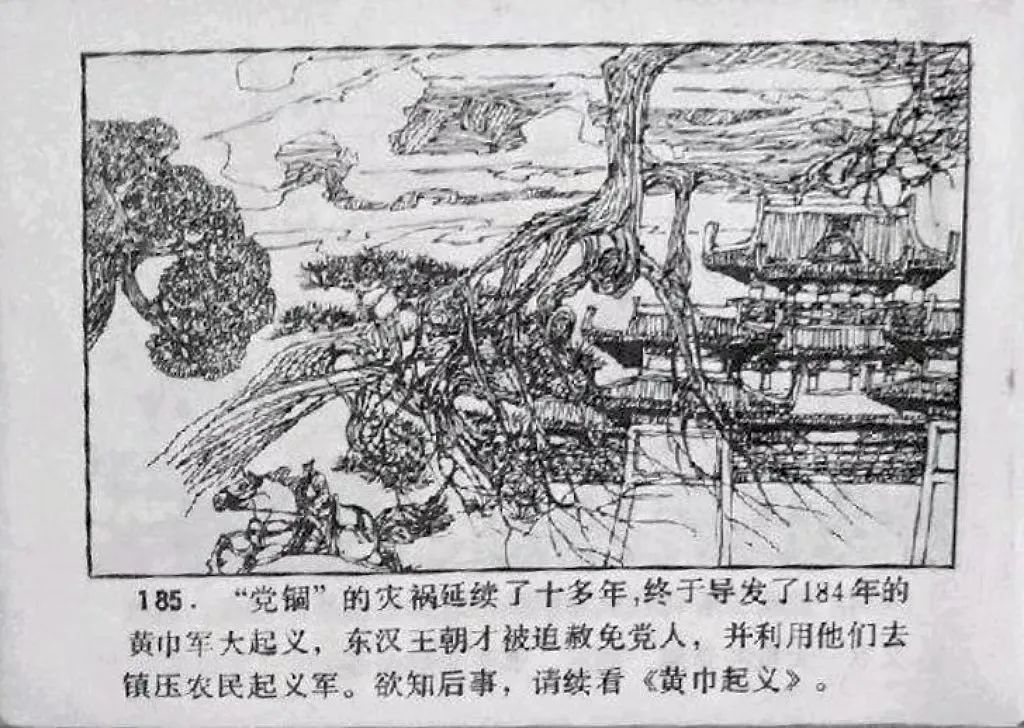 185. “党锢”的灾祸延续了十多年,终于导发了184年的
黄巾军大起义，东汉王朝才被迫赦免党人，并利用他们去
镇压农民起义军。欲知后事，请续看《黄巾起义》。